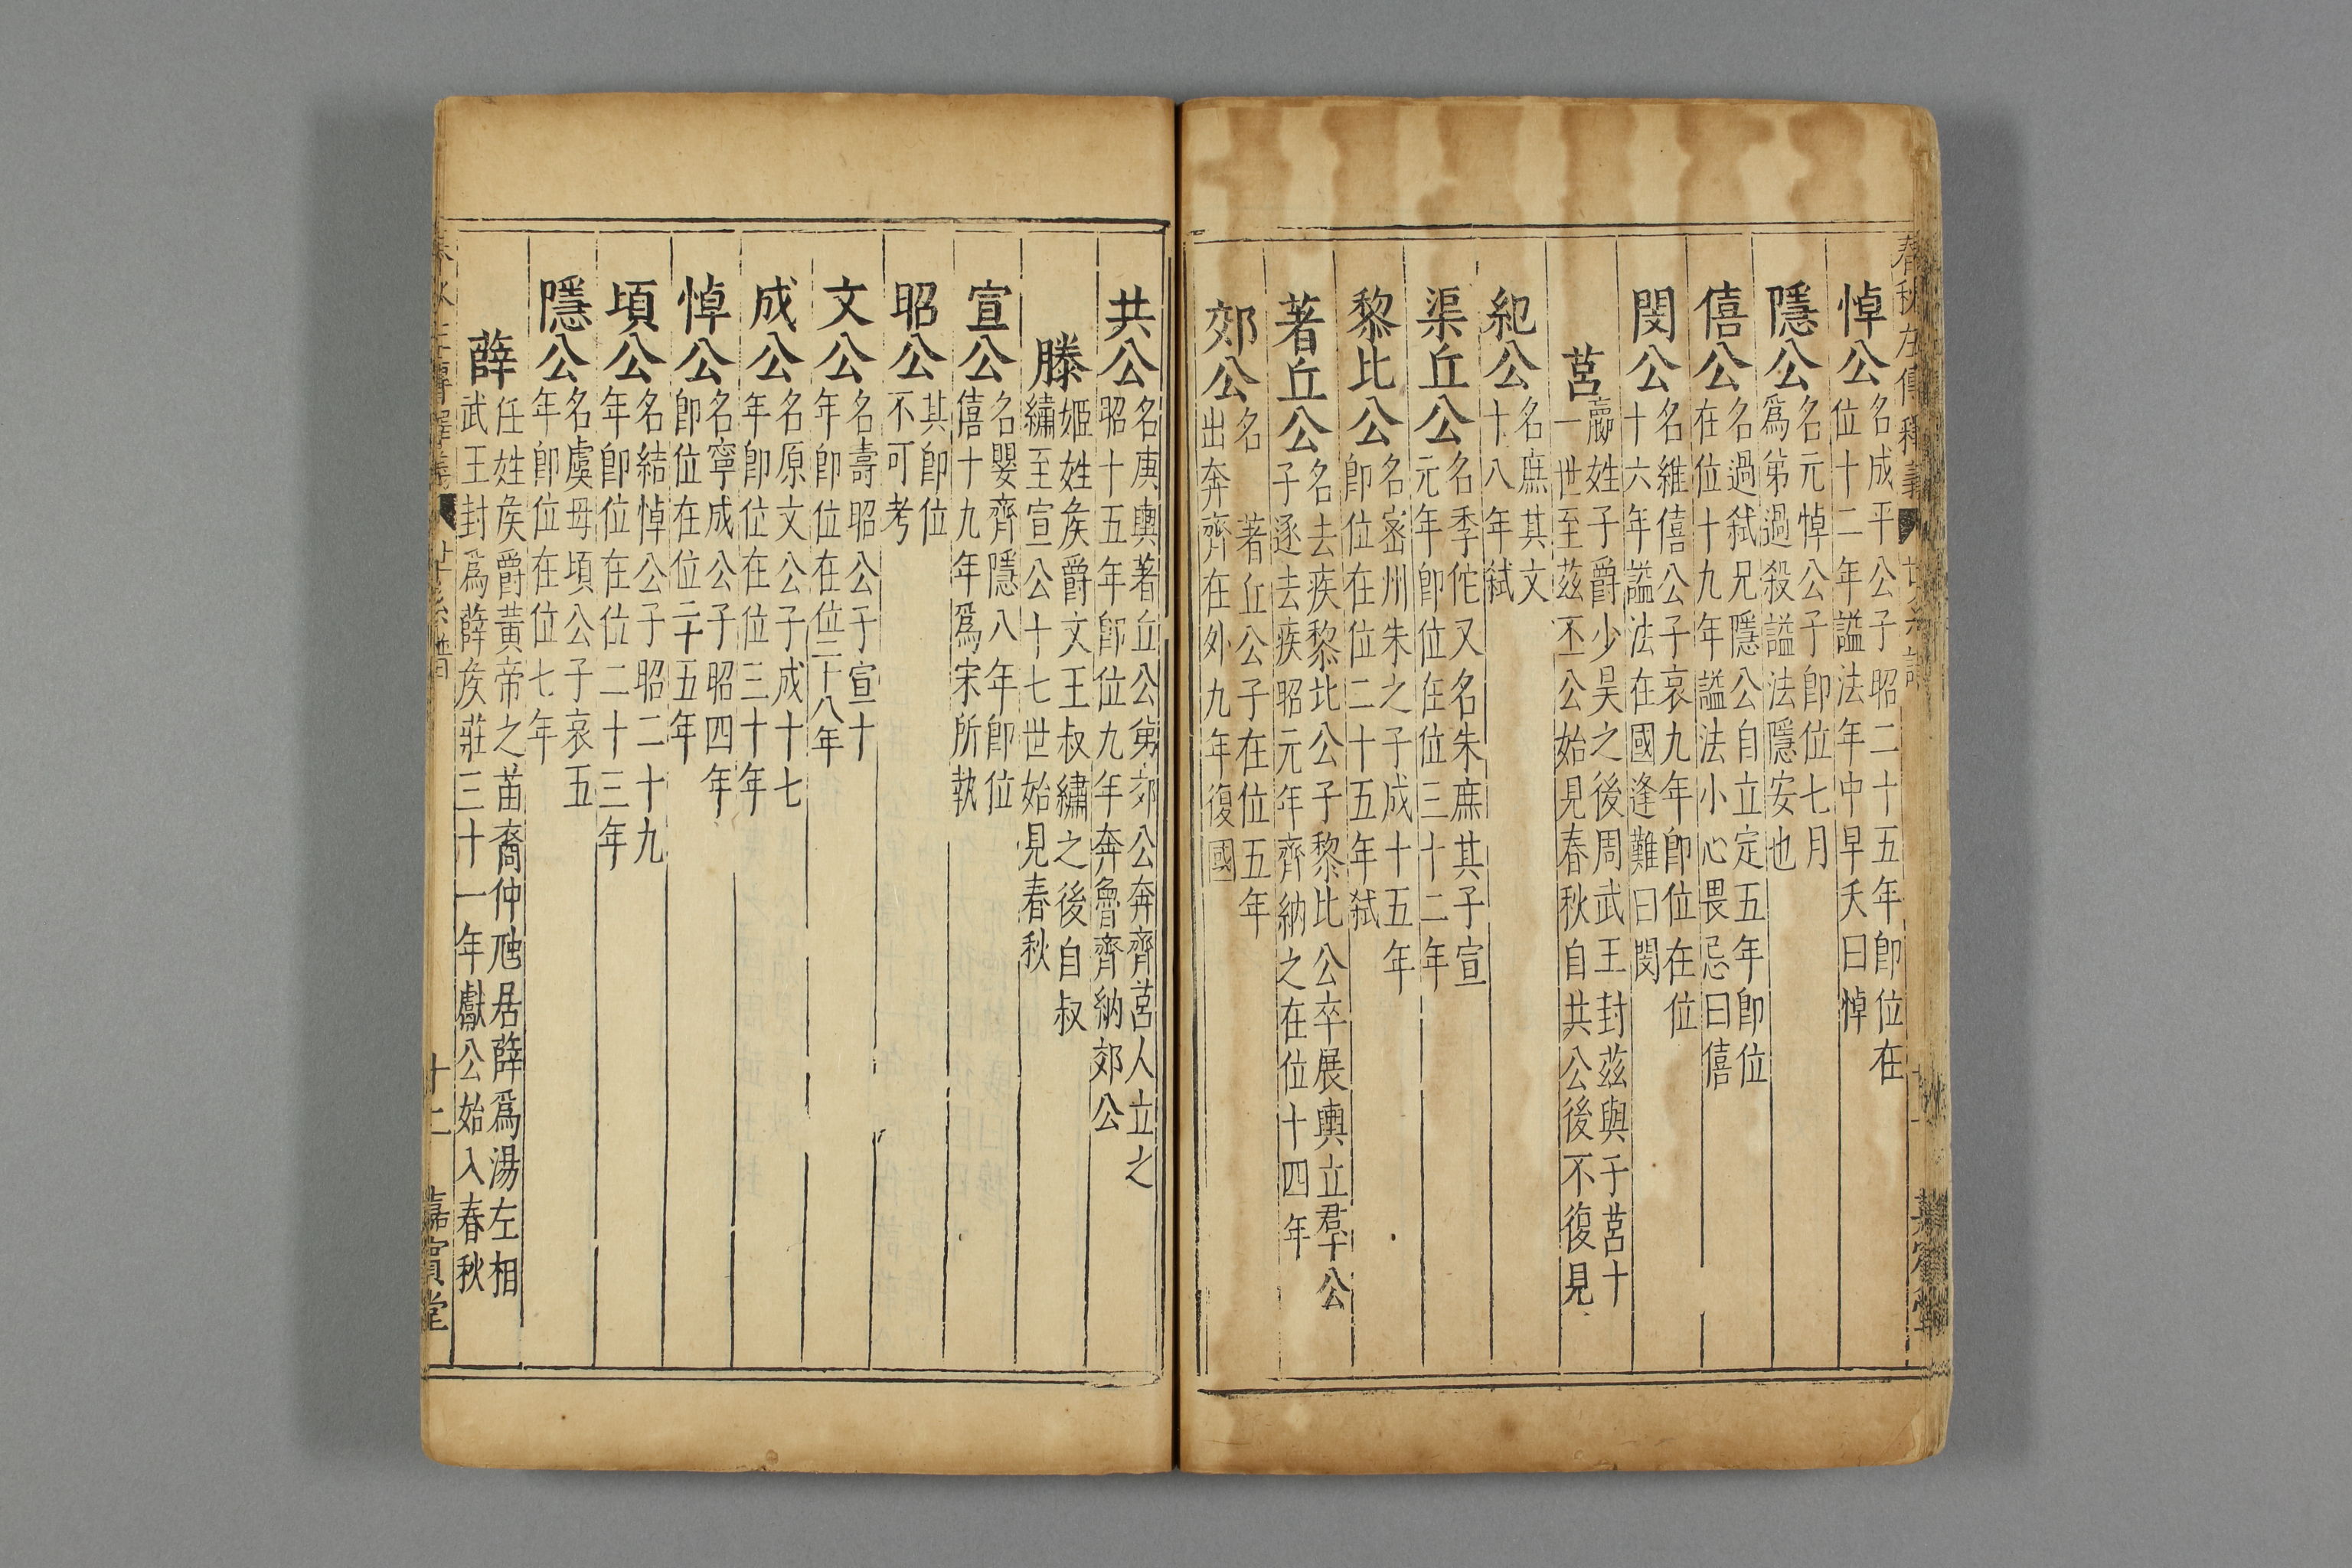 春秋左傳釋義 世系譜
悼公 名成平公子昭二十五年卽位在
位十二年謚法年中早夭曰悼
隱公 名元悼公子卽位七月
爲弟過殺謚法隱安也
僖公 名過弒兄隱公自立定五年卽位
在位十九年謚法小心畏忌曰僖
閔公 名維僖公子哀九年卽位在位
十六年謚法在國逢難曰閔
莒 嬴姓子爵少昊之後周武王封茲與于莒十
一世至茲丕公始見春秋自共公後不復見
紀公 名庶其文
十八年弒
渠丘公 名季佗又名朱庶其子宣
元年卽位在位三十二年
黎比公 名密州朱之子成十五年
卽位在位二十五年弒
著丘公 名去疾黎比公子黎比公卒展輿立羣公
子逐去疾昭元年齊納之在位十四年
郊公 名 著丘公子在位五年
出奔齊在外九年復國
共公 名庚輿著丘公弟郊公奔齊莒人立之
昭十五年卽位九年奔魯齊納郊公
滕 姬姓矦爵文王叔繡之後自叔
繡至宣公十七世始見春秋
宣公 名嬰齊隱八年卽位
僖十九年爲宋所執
昭公 其卽位
不可考
文公 名壽昭公子宣十
年卽位在位二十八年
成公 名原文公子成十七
年卽位在位三十年
悼公 名寧成公子昭四年
卽位在位二十五年
頃公 名結悼公子昭二十九
年卽位在位二十三年
隱公 名虞母頃公子哀五
年卽位在位七年
薛 任姓矦爵黃帝之苗裔仲虺居薛爲湯左相
武王封爲薛矦莊三十一年獻公始入春秋
春秋左傳釋義 世系譜 十二 嘉賓堂